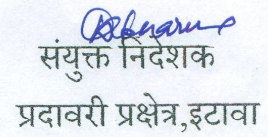 संयुक्त निदेशक
प्रदावरी प्रक्षेत्र,इटावा